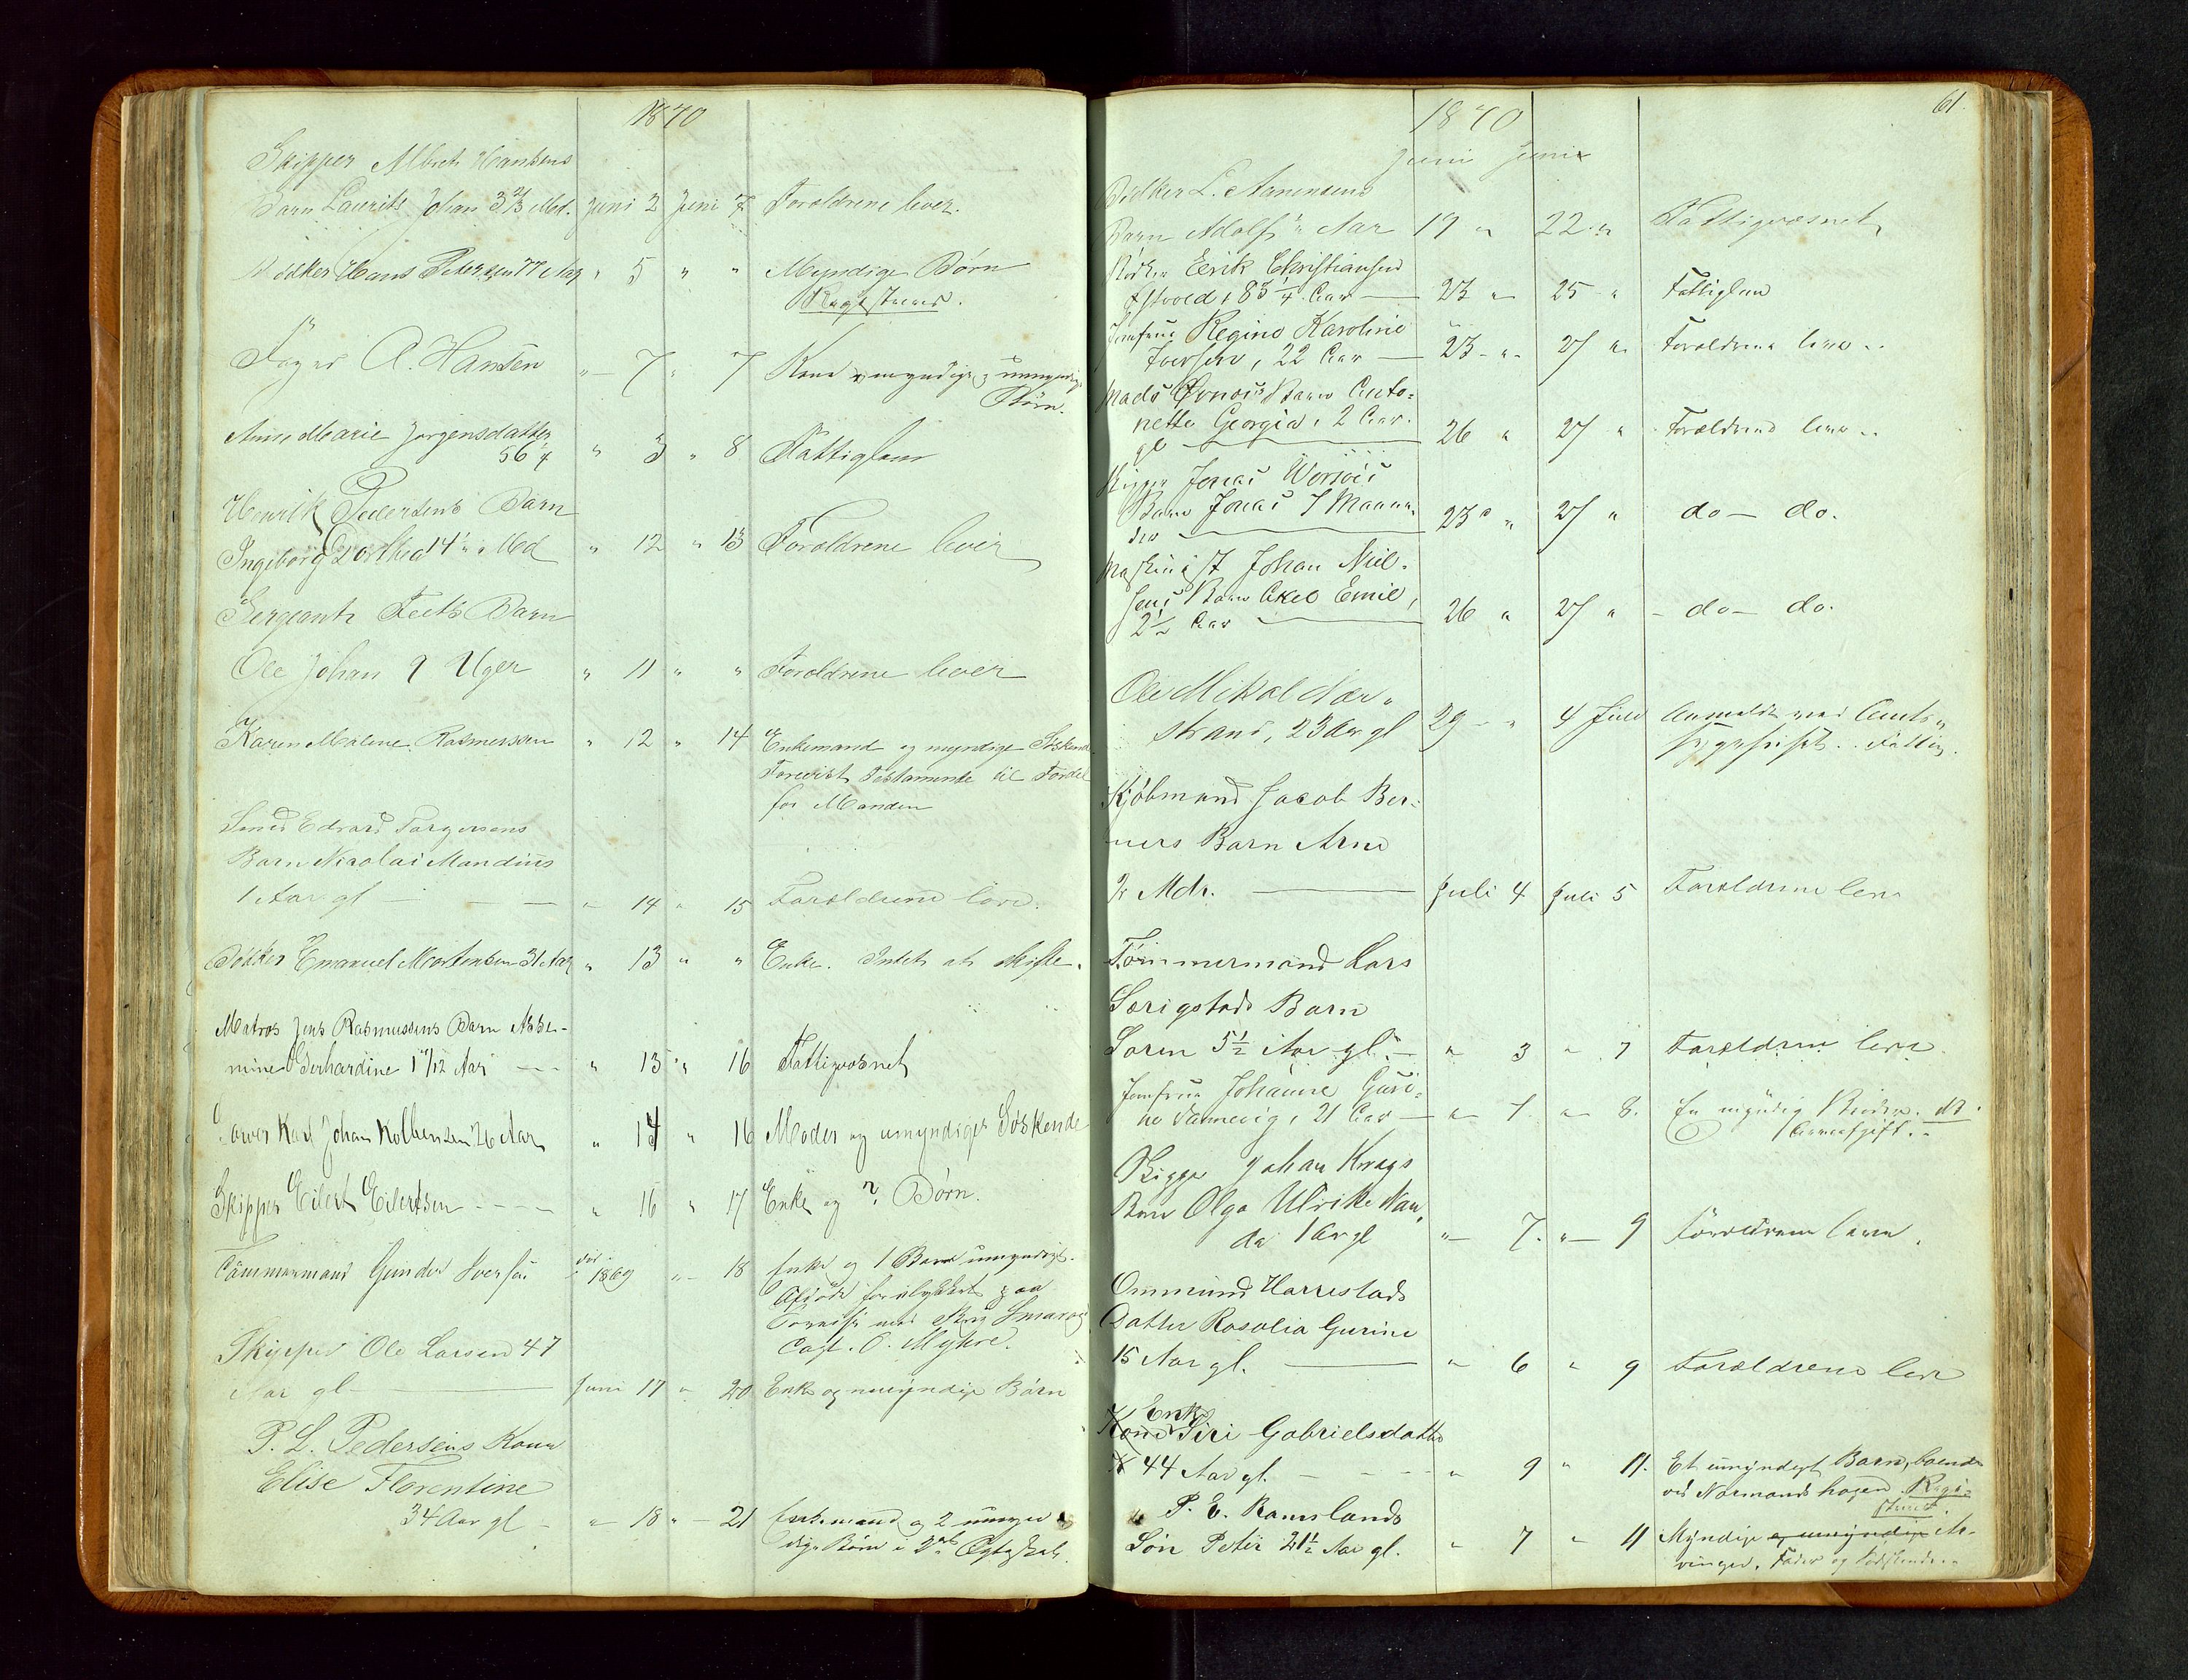 1870
Skipper Albert Hansens
Barn Laurits Johan 3 2/3 Md. Juni 2 Juni 7 Foreldrene lever.
Bødker Hans Petersen 77 Aar " 5 " " Myndige Børn
Registreres.
A. Hansen " 7 " 7 Kone myndige umyndige
Børn.
Anne Marie Jørgensdatter
56 " 3 " 8 Fattiglem
Henrik Pedersens Barn
Ingeborg Dorthea 14 Md " 12 " 13 Foreldrene lever
Sergeant Barn
Ole Johan 7 Uger " 11 " " Foreldrene lever
Karen Malene Rasmussen " 12 " 14 Enkemand og myndige Søskende
Forevist Testamente til Fordel
for Manden
Smed Edvard Torgersens
Barn Nicolai Mandius
1 Aar gl — " 14 " 15 Foreldrene leve.
Bødker Emanuel Mortensen 31 Aar " 13 " " Enke. Intet at skifte.
Matros Jens Rasmussens Barn
mine Gerhardine 1 11/12 Aar — " 13 " 16 Fattigvæsnet
Garver Karl Johan Kolbensen 26 Aar " 14 " 16 Moder og umyndiger Søskende
Skipper Eilert Eilertsen - - - - " 16 " 17 Enke og ? Børn.
Tømmermand Gunder Iversen 1869 " 18 Enke og 1 Barn umyndigt.
Afdøde forulykket paa
med Brig Smarag
Capt. O. Myhre.
Skipper Ole Larsen 47
Aar gl — Juni 17 " 20 Enke og umyndige Børn
P. L. Pedersens Kone
Elise Florentine
34 Aar gl — " 18 " 21 Enkemand og 2 umyn
dige Børn i 2det Ægteskab.
61.
1870
Juni Juni
Bødker L. Aanensens
Barn Adolf " Aar 19 " 22 " Fattigvæsnet
Eerik Christiansen
83 1/4 Aar — 23 " 25 " Fattiglem
Jomfrue Regine Karoline
Iversen, 22 Aar — 23 " 27 " Foreldrene leve
Mads Barn Anto-
nette Georgia, 2 Aar
gl — 26 " 27 " Foreldrene leve
Skipper Jonas
Barn Jonas 7 Maane
der — 23 " 27 " do — do.
Maskinist Johan Niel-
sens Barn Axel Emil,
2 1/2 Aar — 26 " 27 " — do — do.
Ole Mikal Nær
strand, 23 Aar gl 29 " 4 Juli Anmeldt ved Amts
sygehuset. Fattig.
Kjøbmand Jacob Ber-
ners Barn Arne
2 Mdr. — Juli 4 Juli 5 Foreldrene leve
Tømmermand Lars
Særigstads Barn
Soren 5 1/2 Aar gl. — " 3 " 7 Foreldrene leve
Jomfrue Johanne Guri-
ne Tannevig, 21 Aar — " 7. " 8. En myndig Broder.
Arveafgift.
Skipper Johan Krags
Barn Olga Ulrike Nan
da 1 Aar gl " 7. " 9 Foreldrene leve.
Ommund Harrestads
Datter Rosalia Gurine
15 Aar gl. — " 6 " 9 Foreldrene leve
Enke
Kone Siri Gabrielsdatter
44 Aar gl. — " 9 " 11. Et umyndigt Barn, boende
ved Normandshagen. Regi-
streret
P. E. Ramslands
Søn Peter 21 1/2 Aar gl. " 7 " 11 Myndige og umyndige Ar-
vinger. Fader og Sødskende.